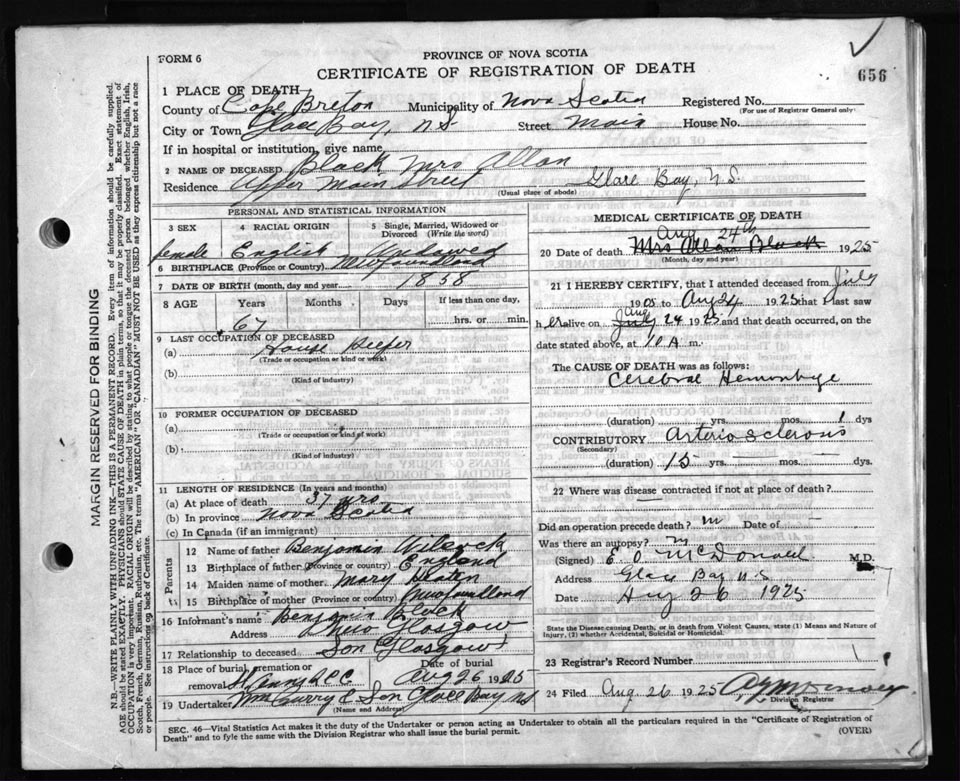 656
FORM 6
PROVINCE OF NOVA SCOTIA
CERTIFICATE OF REGISTRATION OF DEATH
MARGIN RESERVED FOR BINDING
N.B.—WRITE PLAINLY WITH UNFADING INK—THIS IS A PERMANENT RECORD. Every item of information should be carefully supplied.
AGE should be stated EXACTLY. PHYSICIANS should STATE CAUSE OF DEATH in plain terms, so that it may be properly classified. Exact statement of
OCCUPATION is very important. RACIAL ORIGIN will be described by stating to what people or tongue the deceased person belonged whether English, Irish,
Scotch, French, German, Russian, Ruthenian, etc. The terms "AMERICAN" OR "CANADIAN" MUST NOT BE USED as they express citizenship but not a race
or people. See instructions on back of Certificate.
1 PLACE OF DEATH—
County of Cape Breton Municipality of Nova Scotia Registered No.
(For use of Registrar General only)
City or Town Glace Bay, N.S Street Main House No.
If in hospital or institution, give name
2 NAME OF DECEASED Black, Mrs Allan
Residence Upper Main Street Glace Bay, N.S.
(Usual place of abode)
PERSONAL AND STATISTICAL INFORMATION
3 SEX 4 RACIAL ORIGIN 5 Single, Married, Widowed or Divorced (Write the word)
female English Widowed
6 BIRTHPLACE (Province or Country) Newfoundland
7 DATE OF BIRTH (month, day and year) 1858
8 AGE Years Months Days If less than one day,
67 hrs. or min.
9 LAST OCCUPATION OF DECEASED
(a) House Keeper
(Trade or occupation or kind or work)
(b)
(Kind of industry)
10 FORMER OCCUPATION OF DECEASED
(a)
(Trade or occupation or kind of work)
(b)
(Kind of industry)
11 LENGTH OF RESIDENCE (In years and months)
(a) At place of death 37 yrs
(b) In province Nova Scotia
(c) In Canada (if an immigrant)
Parents
12 Name of father Benjamin
13 Birthplace of father (Province or country) England
14 Maiden name of mother Mary
15 Birthplace of mother (Province or country) Newfoundland
16 Informant's name Benjamin Black
Address New Glasgow
17 Relationship to deceased Son Glasgow
18 Place of burial, cremation or removal Date of burial Aug 26 1925
19 Undertaker Wm Curry & Son Glace Bay NS
(Name and Address)
MEDICAL CERTIFICATE OF DEATH
Aug 24th
20 Date of death Mrs Allan Black 1925
(Month, day and year)
21 I HEREBY CERTIFY, that I attended deceased from July
1905 to Aug 24 1925 that I last saw
Aug
her alive on July 24 1925 and that death occurred, on the
date stated above, at 10 A m.
The CAUSE OF DEATH was as follows:
Cerebral Hemorrhage
(duration) yrs. mos. 1 dys
CONTRIBUTORY Arterio sclerosis
(Secondary)
(duration) 15 yrs. mos. dys.
22 Where was disease contracted if not at place of death?
Did an operation precede death? Date of
Was there an autopsy?
(Signed) E. O. McDonald M.D.
Address Glace Bay N.S
Date Aug 26 1925
State the Disease causing Death, or in death from Violent Causes, state (1) Means and Nature of
Injury, (2) whether Accidental, Suicidal or Homicidal.
23 Registrar's Record Number
24 Filed Aug 26 1925
Division Registrar
SEC. 46—Vital Statistics Act makes it the duty of the Undertaker or person acting as Undertaker to obtain all the particulars required in the "Certificate of Registration of
Death" and to fyle the same with the Division Registrar who shall issue the burial permit.
(OVER)